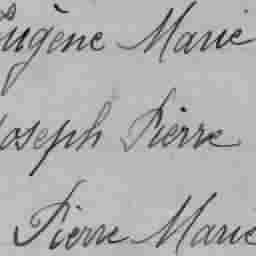 Eugène Marie
Joseph Pierre
Pierre Marie